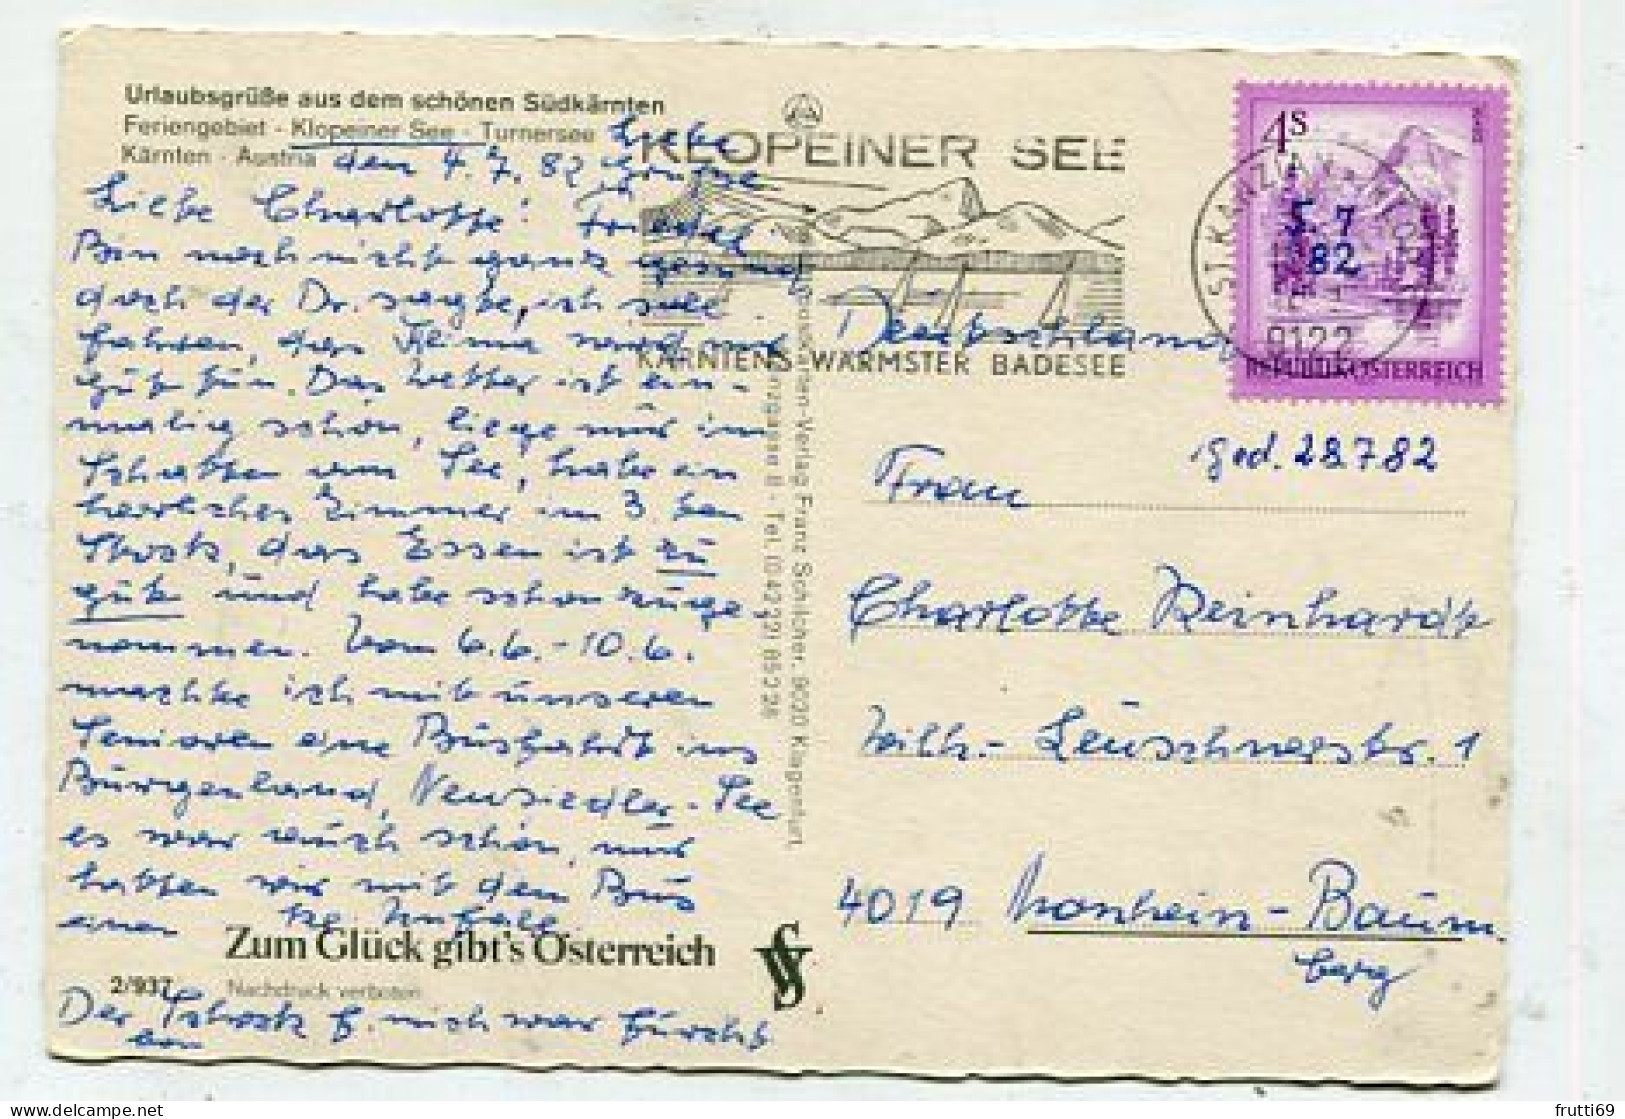 Urlaubsgrüße aus dem schönen Südkärnten
Feriengebiet - Klopeiner See - Turnersee
Kärnten - Austria
den 4.7.82
Liebe Grüße
Friedel
Liebe Charlotte!
Bin noch nicht ganz gesund
doch der Dr. sagte, ich soll
fahren, das Klima wird mir
gut tun. Das Wetter ist ein-
malig schön, liege nur im
Schatten am See, habe ein
herrliches Zimmer im 3. ten
Stock, das Essen ist zu
gut und habe schon zuge
nommen. Vom 6.6.-10.6.
machte ich mit unseren
Senioren eine Busfahrt ins
Burgenland, Neusiedler-See
es war auch schön, nur
hatten wir mit dem Bus
einen kl. Unfall.
Zum Glück gibt's Österreich
2/937
Nachdruck verboten
Der Schock f. mich war furchtb
KLOPEINER SEE
KÄRNTENS WÄRMSTER BADESEE
4S
ST.KANZIAN
5.7
82
9122
REPUBLIK ÖSTERREICH
Deutschland
karten-Verlag Franz Schilcher, 9020 Klagenfurt
gasse 11 - Tel. (04222) 85228
ged. 28.7.82
Frau
Charlotte Reinhardt
Wilh.- Leuschnerstr. 1
4019 Monheim-Baum
berg
frutti69